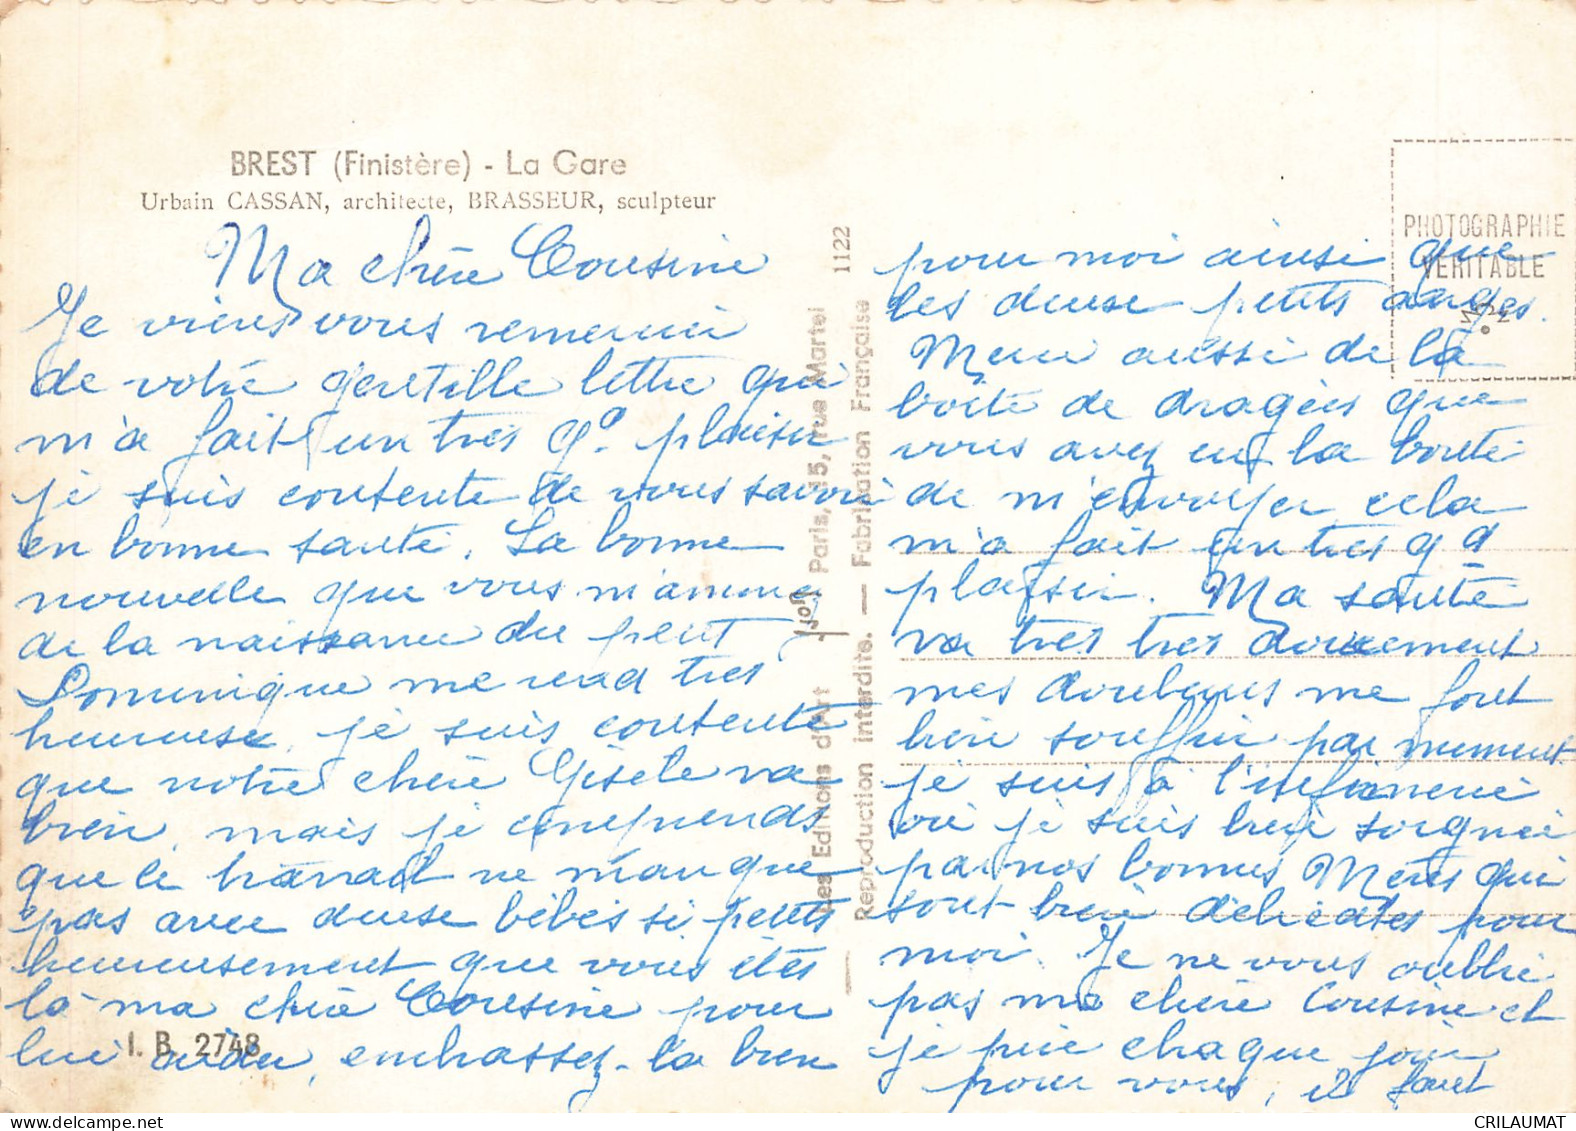 BREST (Finistère) - La Gare
Urbain CASSAN, architecte, BRASSEUR, sculpteur
Ma chère Cousine
Je viens vous remercier
de votre gentille lettre qui
m'a fait un tres gd plaisir
je suis contente de vous savoir
en bonne santé. La bonne
nouvelle que vous m'annonce
de la naissance du petit
Dominique me rend tres
heureuse, je suis contente
que notre chère Gisele va
bien, mais je comprends
que le travail ne manque
pas avec deuse bébés si petits
heureusement que vous êtes
là ma chère Cousine pour
lui aider, embrassez-la bien
I. B. 2748
Les Editions d'Art Yvon Paris, 15, rue Martel 1122
Reproduction interdite. — Fabrication Française
PHOTOGRAPHIE
VERITABLE
pour moi ainsi que
les deuse petits anges.
Merci aussi de la
boîte de dragées que
vous avez eu la bonté
de m'envoyer cela
m'a fait un tres gd
plaisir. Ma santé
va tres tres doucement
mes douleurs me font
bien souffrir par moment
je suis à l'infirmerie
où je suis bien soignée
par nos bonnes Mères qui
sont bien délicates pour
moi. Je ne vous oublie
pas ma chère Cousine et
je prie chaque jour
pour vous, il faut
CRILAUMAT